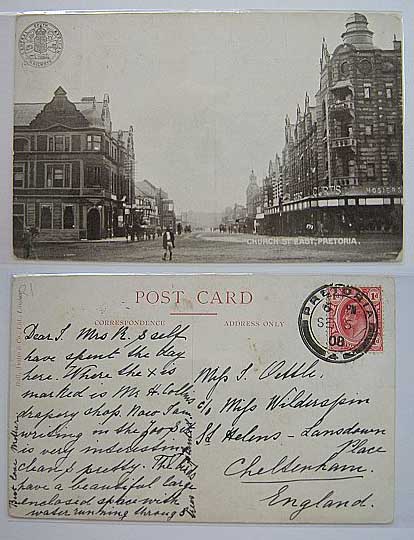 CENTRAL SOUTH AFRICAN
RAILWAYS
HOSIERS
CHURCH ST EAST, PRETORIA.
POST CARD
CORRESPONDENCE
ADDRESS ONLY
PRETORIA
08
Dear I. Mrs R. & self
have spent the day
here. Where the x is
marked is Mr H. Collins
drapery shop. Now I am
writing in the Zoo & it
is very interesting
clean & pretty. The
have a beautiful large
enclosed space with
water running through
Miss I. Oettle.
c/o Miss Wilderspin
St Helens - Lansdown
Place
Cheltenham.
England.